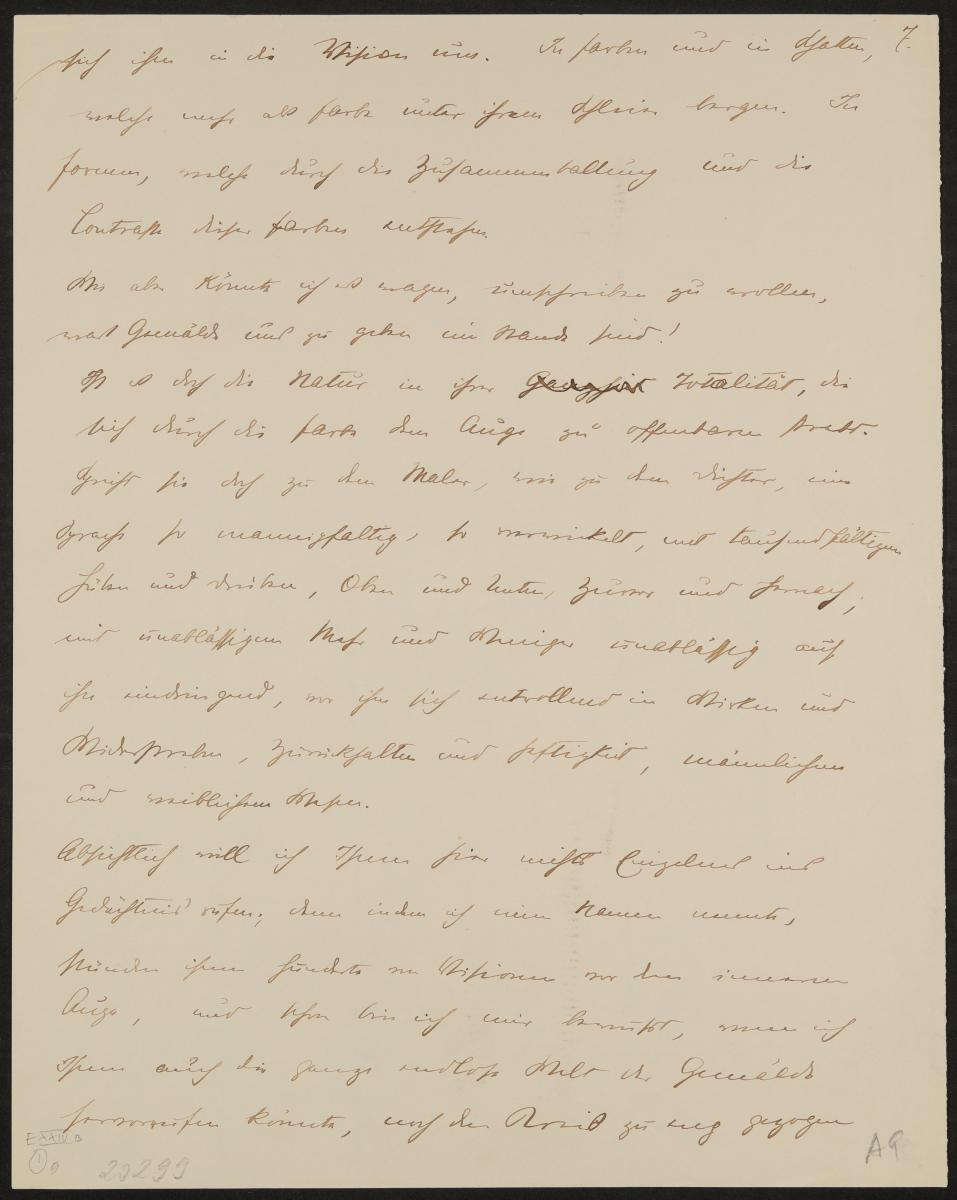 7.
sich ihm in die Vision um. In Farben und in Schatten,
welche mehr als Farbe unter ihrem Schleier bergen. In
Formen, welche durch die Zusammenballung und die
Contraste dieser Farben entstehen.
Wie aber könnte ich es wagen, umschreiben zu wollen,
was Gemälde uns zu geben im Stande sind!
Ist es doch die Natur in ihrer Ganzheit Totalität, die
sich durch die Farbe dem Auge zu offenbaren strebt.
Spricht sie doch zu dem Maler, wie zu dem Dichter, eine
Sprache so mannigfaltig, so verwickelt, mit tausendfältigem
Hüben und Drüben, Oben und Unten, Zuvor und Hernach,
mit unablässigem Mehr und Weniger unablässig auf
ihn eindringend, vor ihm sich entrollend in Wirken und
Widerstreben, Zurückhalten und Heftigkeit, männlichem
und weiblichem Wesen.
Absichtlich will ich Ihnen hier nichts Einzelnes ins
Gedächtnis rufen; denn indem ich einen Namen nennte,
stünden Ihnen Hunderte von Visionen vor dem inneren
Auge, und schon bin ich mir bewußt, wenn ich
Ihnen auch die ganze endlose Welt der Gemälde
hervorrufen könnte, noch den Kreis zu eng gezogen
E XXIV B
1
9
23299
A9